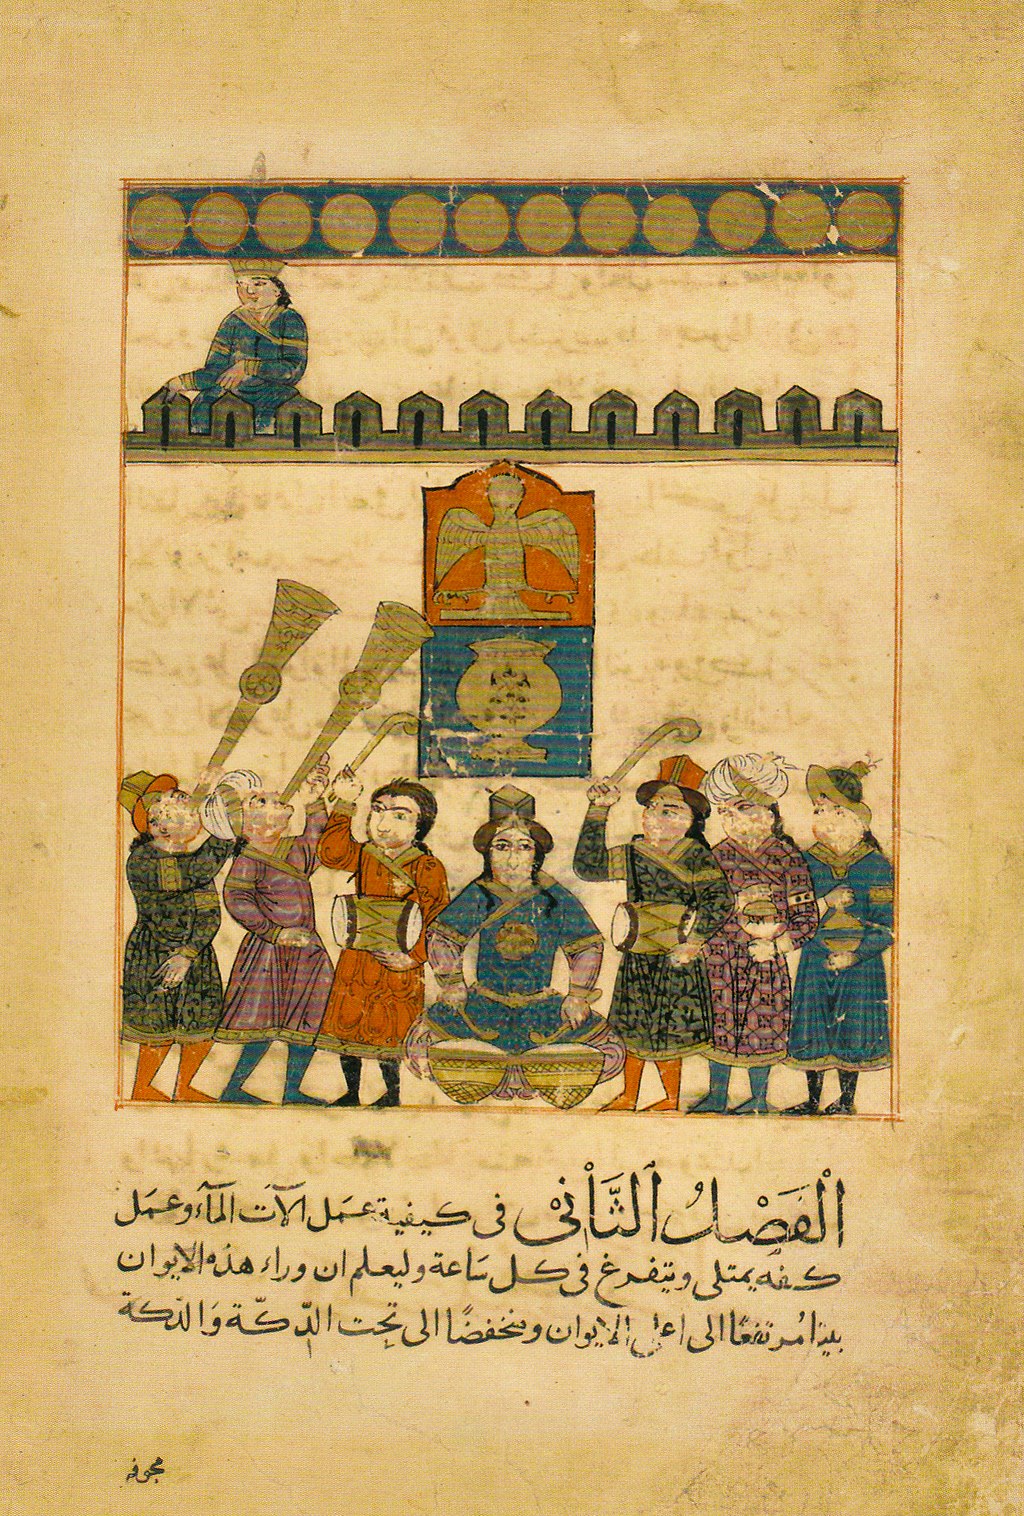 الْفَصْلُ الثَّانِيْ في كيفية عمَل الآت المآء وعمَل
كفه يمتلى ويتفرغ في كل سَاعة وليعلم ان وراء هذه الايوان
بيتا مُرتفعًا الى اعلى الايوان ومنخفضًا الى تحت الدّكّة وَالدّكة
مجوفه